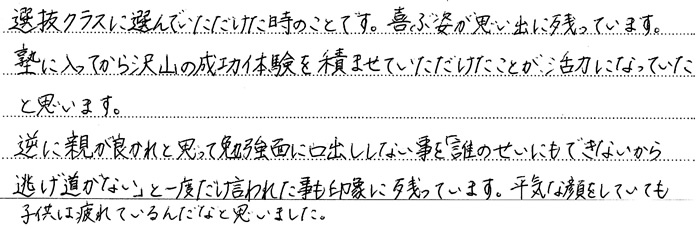 選抜クラスに選んでいただけた時のことです。喜ぶ姿が思い出に残っています。
塾に入ってから沢山の成功体験を積ませていただけたことが、活力になっていた
と思います。
逆に親が良かれと思って勉強面に口出ししない事を「誰のせいにもできないから
逃げ道がない」と一度だけ言われた事も印象に残っています。平気な顔をしていても
子供は疲れているんだなと思いました。